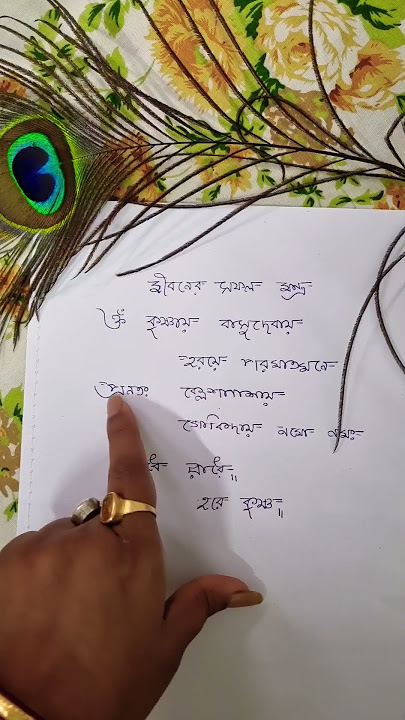 জীবনের সফল মন্ত্র
ওঁ কৃষ্ণায় বাসুদেবায়
হরয়ে পারমাত্মনে
প্রনতঃ ক্লেশনাশায়
গোবিন্দায় নমো নমঃ
রাধে॥
হরে কৃষ্ণ॥